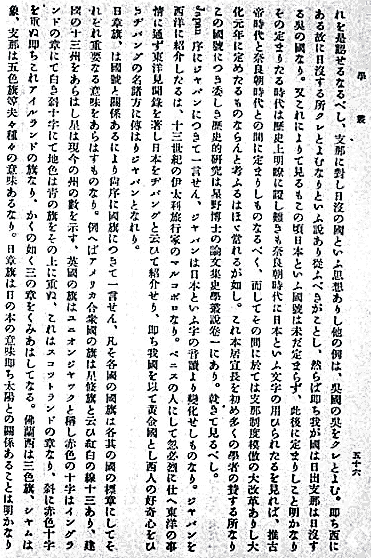 學叢
五十六
れを是認せるなるべし、支那に對し日沒の國といふ思想ありし他の例は、吳國の吳をクレとよむ。卽ち西に
ある故に日沒する所クレとよむなりといふ說あり從ふべきがごとし、然らば卽ち我が國は日出支那は日沒す
る吳の國なり。又これによりて見るもこの頃日本といふ國號は未だ定まらず、此後に定りしこと明かなり
その定まりたる時代は歷史上明瞭に證し難きも奈良朝時代に日本といふ文字の用ひられたるを見れば、推古
帝時代と奈良朝時代との間に定まりしものなるべく、而してその間に於ては支那制度模倣の大改革ありし大
化元年に定めたるものならんと考ふるはほゞ當れるが如し。これ本居宣長を初め多くの學者の賛する所なり
この國號につき委しき歷史的研究は星野博士の論文集史學叢說卷一にあり。就きて見るべし。
Japan 序にジャパンにつきて一言せん。ジャパンは日本といふ字の音讀より變化せしものなり。ジャパンを
西洋に紹介したるは、十三世紀の伊太利旅行家のマルコポロなり。ベニスの人にして忽必烈に仕へ東洋の事
情に通ず東洋見聞錄を著し日本をヂパングと云ひて紹介せり、卽ち我國を以て黃金國とし西人の好奇心をひ
きヂパングの名諸方に傳はりジャパンとなれり。
日章旗、は國號と關係あるにより尙序に國旗につきて一言せん、凡そ各國の國旗は各其の國の標章にしてそ
れぞれ重要なる意味をあらはすものなり。例へばアメリカ合衆國の旗は星條旗と云ひ紅白の線十三あり、建
國の十三州をあらはし星は現今の州の數を示す、英國の旗はユニオンジャックと稱し赤色の十字はイングラ
ンドの章にて白き斜十字にて地色は靑の旗をその上に重ね、これはスコットランドの章なり、斜に赤色十字
を重ね卽ちこれアイルランドの旗なり、かくの如く三の章をくみあはしてなる。佛蘭西は三色旗、シャムは
象、支那は五色旗等夫々種々の意味あるなり。日章旗は日の本の意味卽ち太陽との關係あることは明かなり